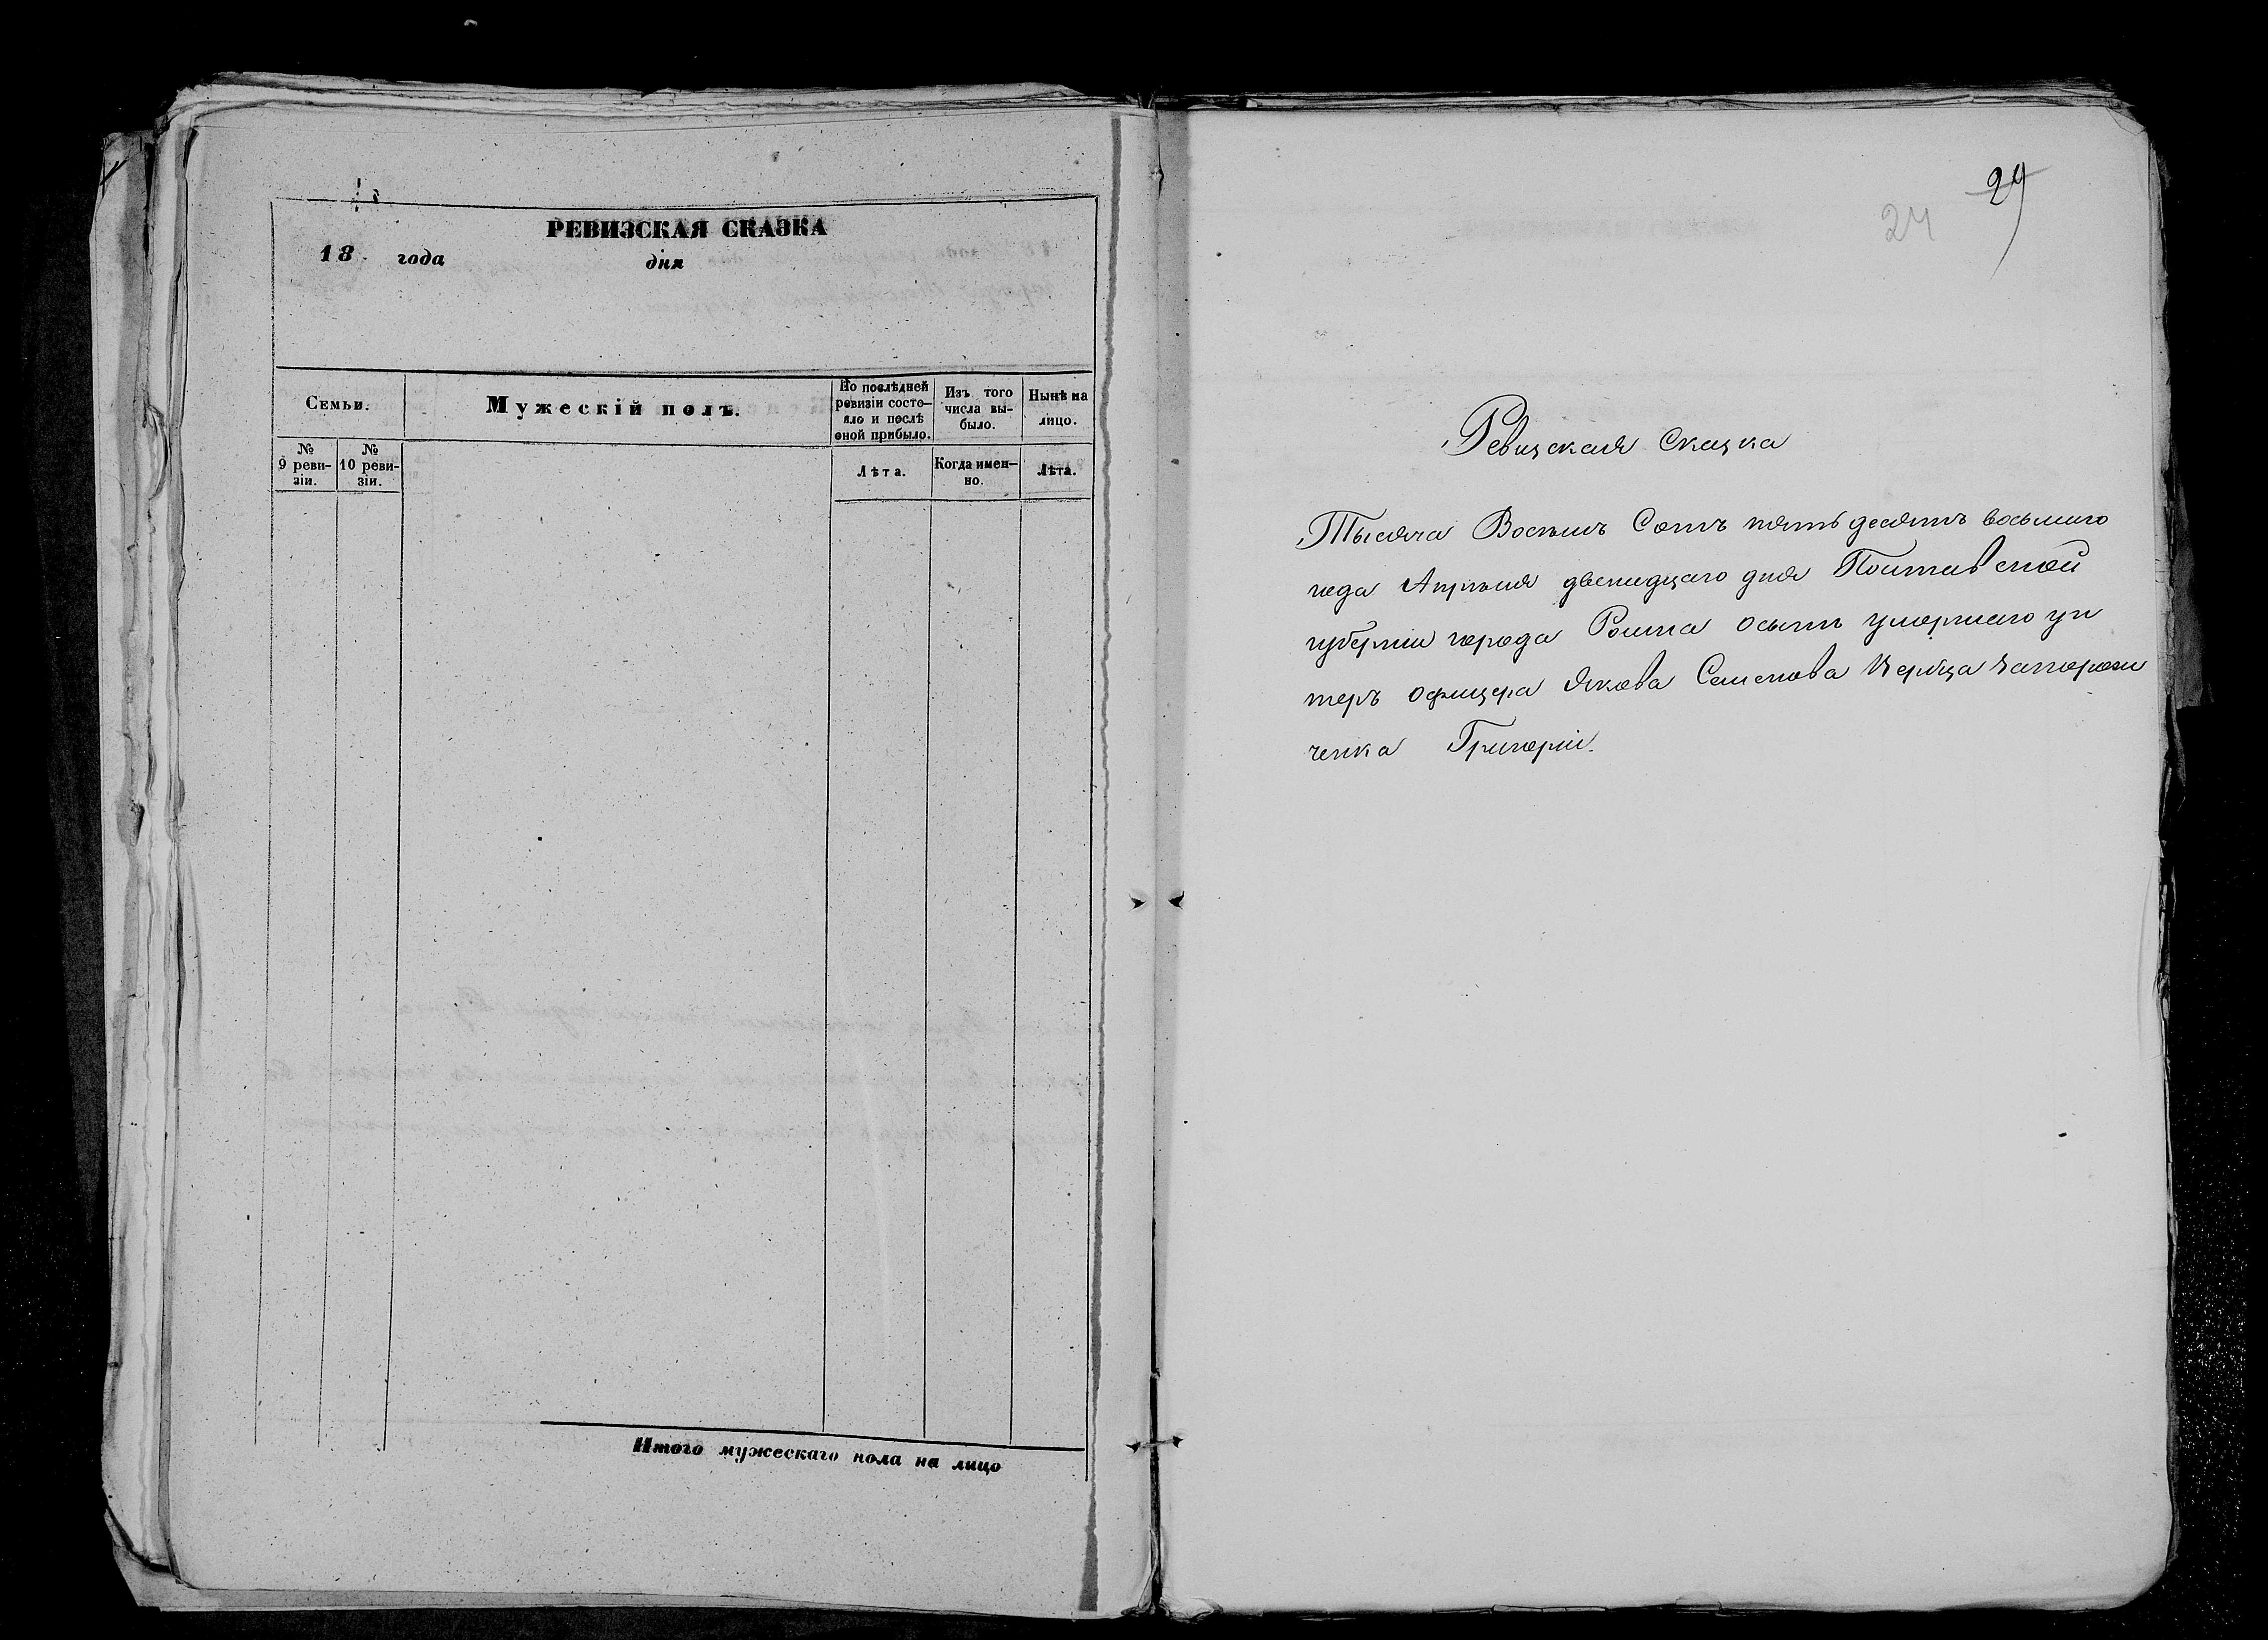 РЕВИЗСКАЯ СКАЗКА
18 года дня
Семьи.
Мужескій полъ.
По послѣдней ревизіи состо-
яло и послѣ
оной прибыло.
Изъ того
числа вы-
было.
Нынѣ на
лицо.
№
9 реви-
зіи.
№
10 реви-
зіи.
Лѣта.
Когда имен-
но.
Лѣта.
Итого мужескаго пола на лицо
29
24
Ревизская Сказка
Тысяча Восемь Сотъ пять десятъ восьмаго
года Апреля двенадцаго дня Полтавской
губерніи города Ромна о сыпъ умершаго ун
теръ офицера Якова Семенова Запорож
ченка Григоріи.